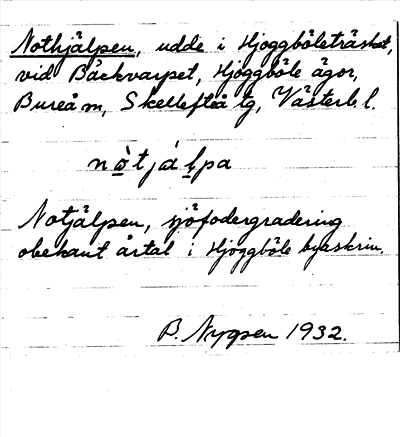 Nothjälpen, udde i Hjoggböleträsket,
vid Bäckvarpet, Hjoggböle ägor,
Bureå m, Skellefteå tg, Västerb l.
nò̱tjáḻpa
Notjälpen, sjöfodergradering
obekant årtal i Hjoggböle byaskrin.
B. 1932.